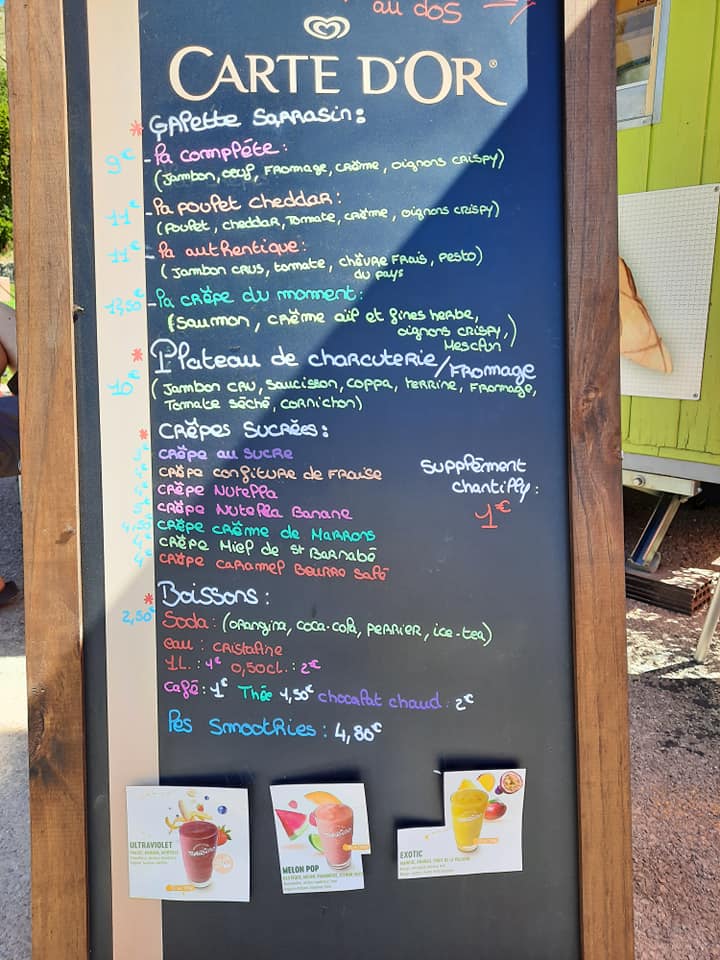 au dos
CARTE D'OR
* Galette Sarrasin :
9€ - La complète :
(Jambon, oeuf, fromage, crème, oignons crispy)
11€ - La poulet cheddar :
(Poulet, cheddar, tomate, crème, oignons crispy)
11€ - La authentique :
(Jambon crus, tomate, chèvre frais, pesto)
du pays
- La crêpe du moment :
(Saumon, crème ail et fines herbe,
oignons crispy,)
Mesclun
* Plateau de charcuterie/fromage
10€ (Jambon cru, saucisson, coppa, terrine, fromage,
Tomate séché, cornichon)
* Crêpes Sucrées :
Crêpe au sucre
Crêpe confiture de fraise
Crêpe Nutella
Crêpe Nutella Banane
4,50€ Crêpe crème de Marrons
4€ Crêpe Miel de St Barnabé
4€ Crêpe caramel Beurre salé
Supplément
chantilly :
1€
* Boissons :
2,50€ Soda : (orangina, coca-cola, perrier, ice-tea)
eau : cristaline
1L. : 4€ 0,50cl. : 2€
Café : 1€ Thée 1,50€ chocolat chaud : 2€
Les Smoothies : 4,80€
ULTRAVIOLET
MELON POP
EXOTIC